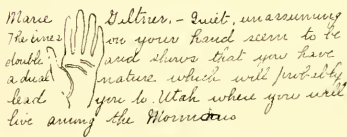 Marie Giltner, - Quiet, unassuming
The lines on your hand seem to be
double and shows that you have
a dual nature which will probably
lead you to Utah where you will
live among the Mormons